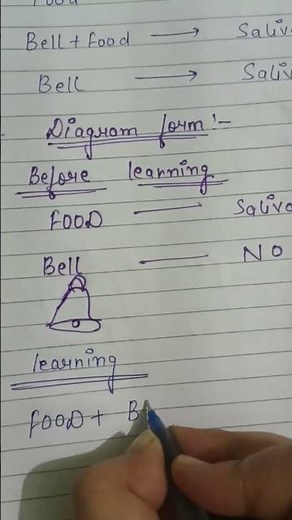 Bell + Food →
Bell →
Diagram form :-
Before learning
FOOD — Saliva
Bell — NO
learning
FOOD + B